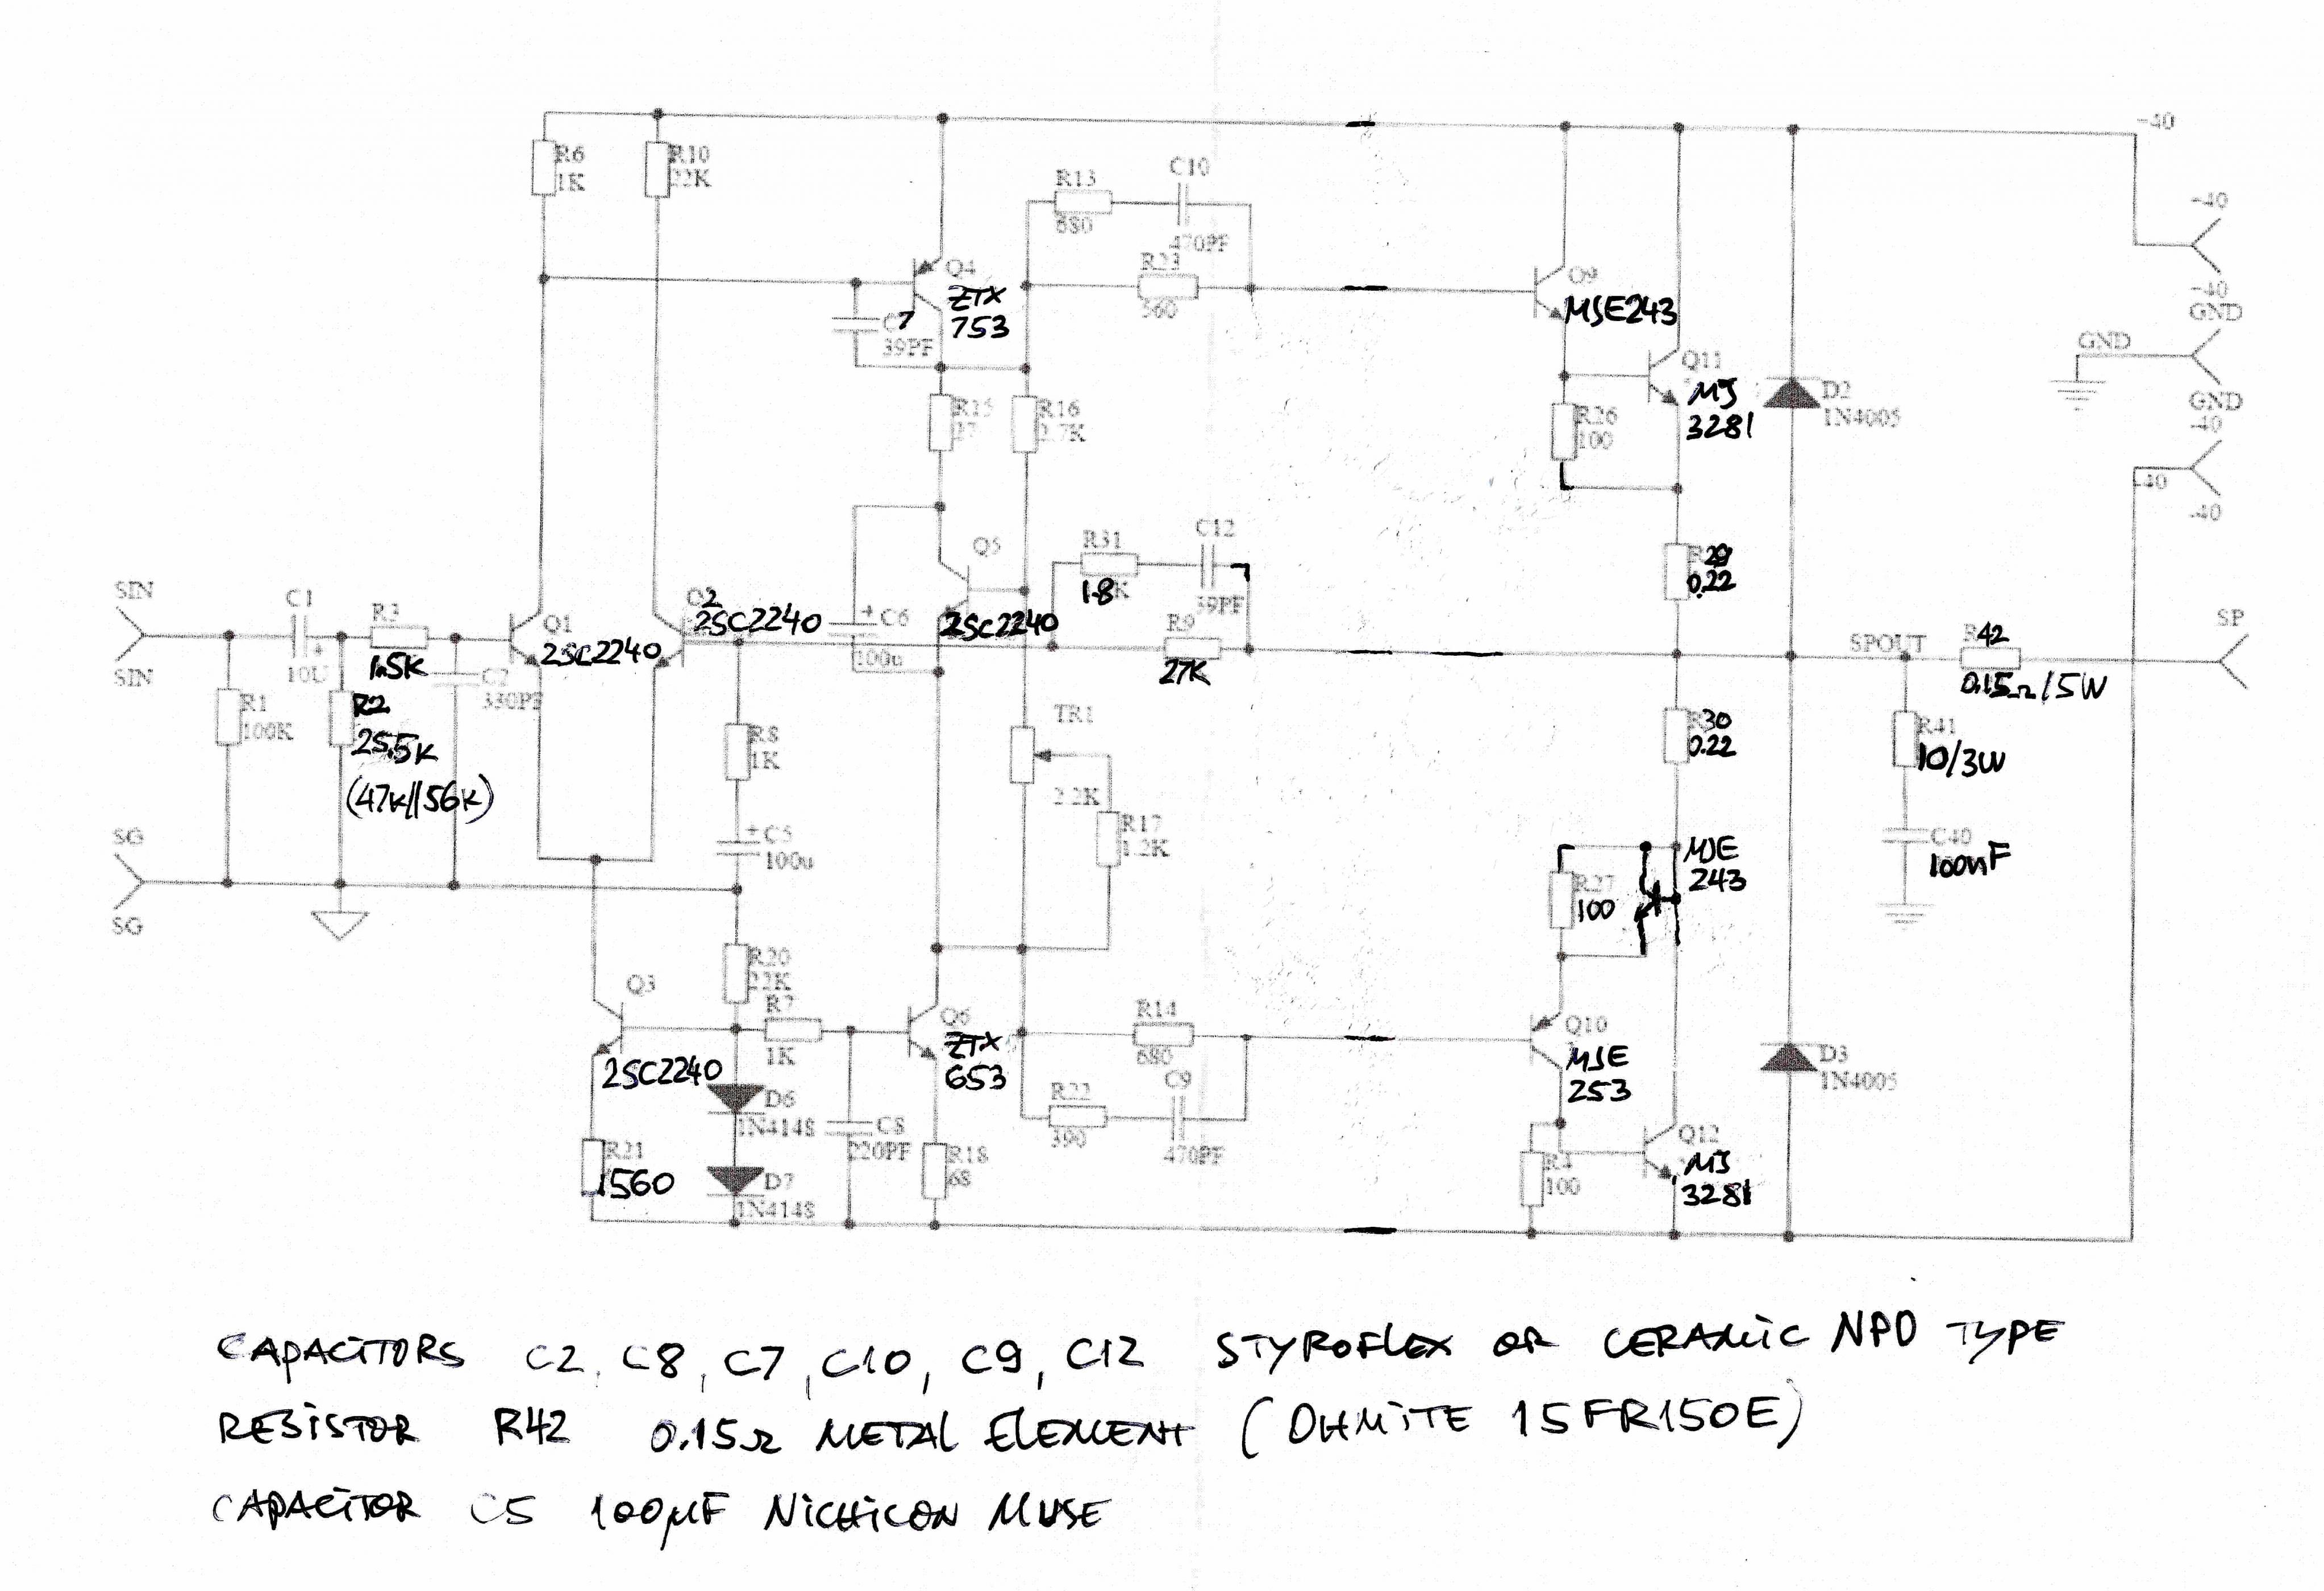 -40
R6
1K
R10
22K
C10
R13
680
470PF
-40
Q4
ZTX
753
R23
560
Q9
MJE243
-40
GND
C7
39PF
GND
Q11
MJ
3281
D2
1N4005
GND
-40
R15
R16
2.7K
R26
100
-40
-40
Q5
R31
1.8K
C12
39PF
R29
0.22
SIN
C1
R3
Q1
2SC2240
2SC2240
C6
2SC2240
R9
27K
SPOUT
R42
0.15Ω/5W
SP
SIN
10U
1.5K
C2
330PF
100u
R1
100K
R2
25.5K
(47K||56K)
R8
1K
TR1
2.2K
R17
1.2K
R30
0.22
R41
10/3W
SG
C5
100u
MJE
243
C40
100nF
R27
100
SG
Q3
R20
22K
R7
1K
Q6
ZTX
653
R14
680
Q10
MJE
253
D3
1N4005
2SC2240
D6
1N4148
C8
220PF
R22
C9
470PF
R21
1560
D7
1N4148
R18
68
R4
100
Q12
MJ
3281
CAPACITORS C2, C8, C7, C10, C9, C12 STYROFLEX OR CERAMIC NPO TYPE
RESISTOR R42 0.15Ω METAL ELEMENT (OHMITE 15FR150E)
CAPACITOR C5 100µF NICHICON MUSE